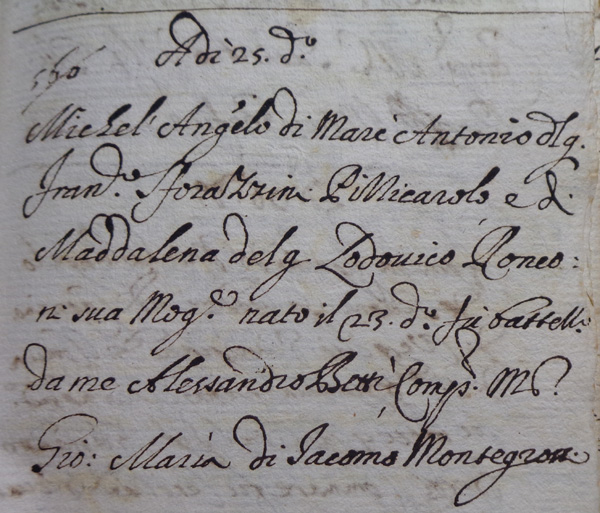 Adi 25. d.º
Michel' Angelo di Marc' Antonio d'l q.
Fran.º Sforazzini Pillicarolo e d.
Maddalena del q Lodovico Ronco:
ni sua Mog.e nato il 23. d.º fu battell.º
da me Alessandro Betti Comp.e Mº?
Gio: Maria di Jacomo Montegron: